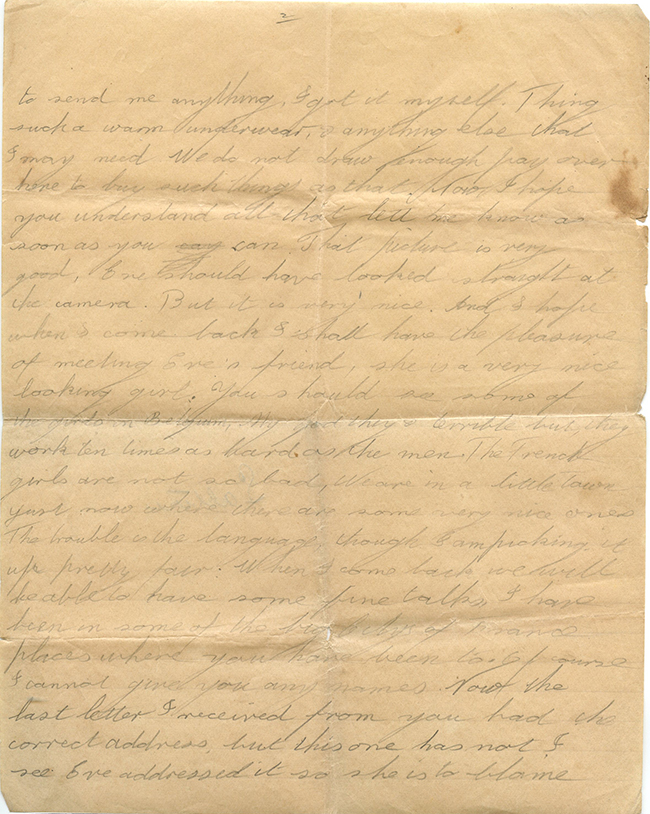 2
to send me anything, I got it myself. Thing
such a warm underwear, & anything else that
I may need. We do not draw enough pay over
here to buy such things as that. Now, I hope
you understand all that, tell me know as
soon as you can. That picture is very
good, Eve should have looked straight at
the camera. But it is very nice. And I hope
when I come back I shall have the pleasure
of meeting Eve's friend, she is a very nice
looking girl. You should see some of
the girls in Belgium, My god they's terrible but, they
work ten times as hard as the men. The French
girls are not so bad, We are in a little town
just now where there are some very nice ones
The trouble is the language, though I am picking it
up pretty fair. When I come back we will
be able to have some fine talks, I have
been in some of the big citys of France
places where you have been to. Of course
I cannot give you any names. Now the
last letter I received from you had the
correct address, but this one has not I
see Eve addressed it so she is to blame